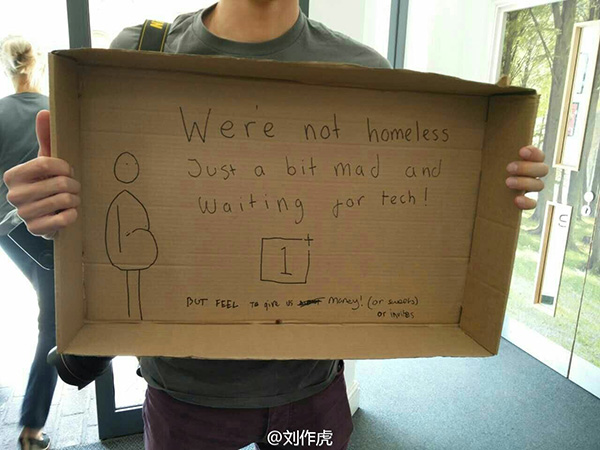 We're not homeless
Just a bit mad and
waiting for tech!
1+
BUT FEEL To give us money! (or sweets)
or invites
@刘作虎